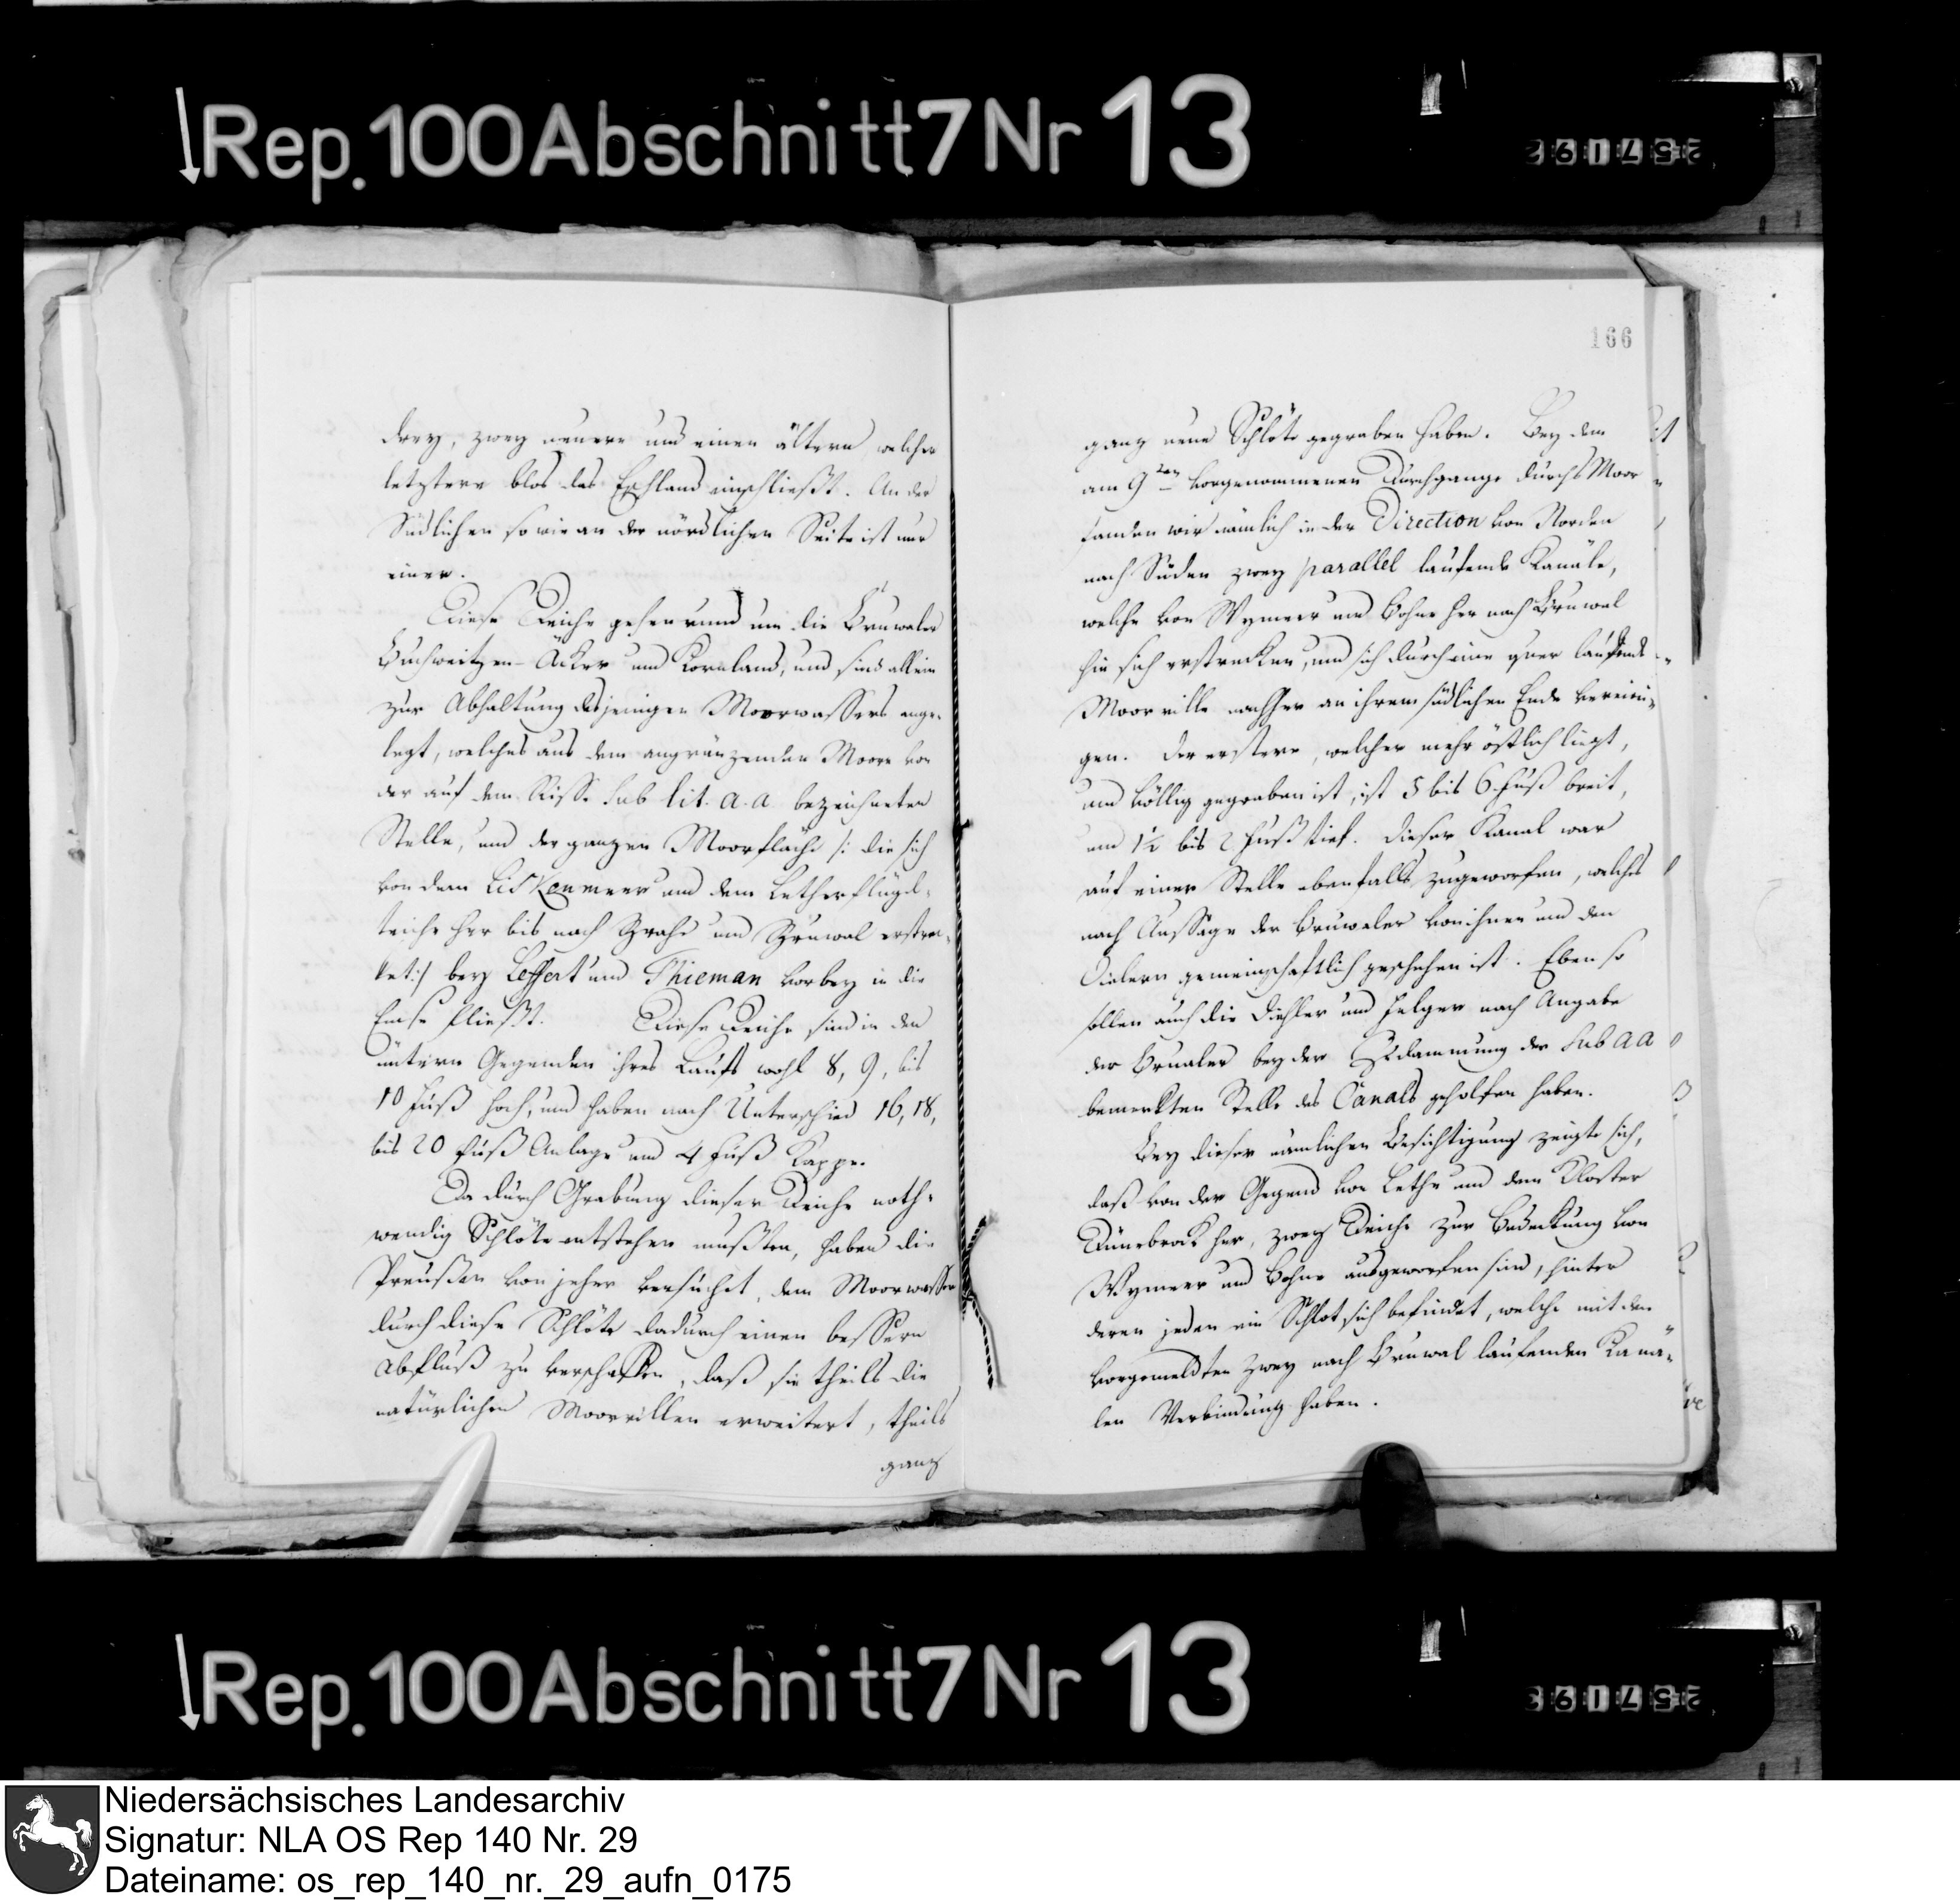 Rep. 100 Abschnitt 7 Nr 13
166
drey, zwey neuere und einen ältern welcher
letztere blos das Eschland einschließt. An der
Südlichen so wie an der nördlichen Seite ist nur
einer.
Diese Deiche gehen rund um die Bruwaler
Buchweitzen-Äcker und Kornland, und sind allein
zur Abhaltung desjenigen Moorwassers ange-
legt, welches aus dem angränzenden Moore von
der auf dem Risse sub lit. a. a bezeichneten
Stelle, und der ganzen Moorfläche /: die sich
von dem Liskenmeer und dem Letherflügel-
teiche her bis nach Brahe und Bruwal erstrec-
ket :/ bey Leffert und Thieman vorbey in die
Emse fließt. Diese Deiche sind in den
untern Gegenden ihres Laufs wohl 8, 9, bis
10 Fuß hoch, und haben nach Unterschied 16, 18,
bis 20 Fuß Anlage und 4 Fuß Kappe.
Da durch Grabung dieser Deiche noth-
wendig Schlöte entstehen mußten, haben die
Preußen von jeher versucht, dem Moorwasser
durch diese Schlöte dadurch einen bessern
Abfluß zu verschaffen, daß sie theils die
natürlichen Moorrillen erweitert, theils
ganz
ganz neue Schlöte gegraben haben. Bey dem
am 9ten vorgenommenen Durchgange durchs Moor
fanden wir nämlich in der Direction von Norden
nach Süden zwey parallel laufende Kanäle,
welche von Wymeer und Bohne her nach Bruwal
hin sich erstrecken, und sich durch eine quer laufende
Moorrille nachher an ihrem südlichen Ende vereini-
gen. Der erstere, welcher mehr östlich liegt,
und völlig gegraben ist, ist 5 bis 6 Fuß breit,
und 1½ bis 2 Fuß tief. Dieser Kanal war
auf einer Stelle ebenfalls zugeworfen, welches
nach Aussage der Bruwaler von ihnen und den
Dielern gemeinschaftlich geschehen ist. Eben so
sollen auch die Diehler und Helger nach Angabe
der Brualer bey der Zudammung der sub a a
bemerkten Stelle des Canals geholfen haben.
Bey dieser nämlichen Besichtigung zeigte sich,
daß von der Gegend von Lethe und dem Kloster
Dünebrock her, zwey Deiche zur Bedeckung von
Wymeer und Bohne ausgeworfen sind, hinter
deren jeden ein Schlot sich befindet, welche mit den
vorgemeldten zwey nach Bruwal laufenden Kanä-
len Verbindung haben.
Rep. 100 Abschnitt 7 Nr 13
Niedersächsisches Landesarchiv
Signatur: NLA OS Rep 140 Nr. 29
Dateiname: os_rep_140_nr._29_aufn_0175